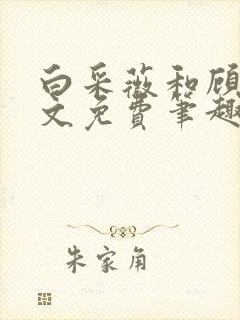 白采薇和顾
文免费笔趣
朱家角